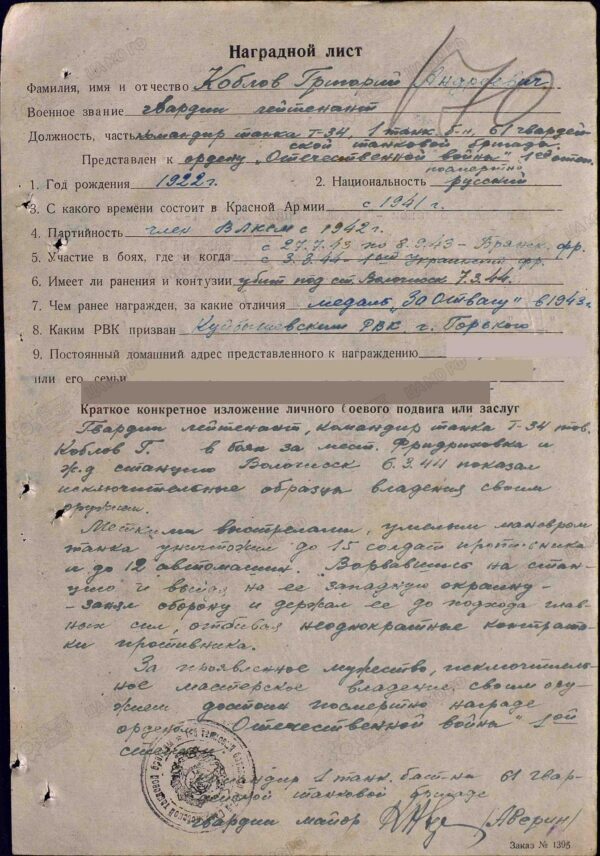 Наградной лист
170
Фамилия, имя и отчество Коблов Григорий Андреевич
Военное звание гвардии лейтенант
Должность, часть командир танка Т-34, 1 танк. б-н, 61 гвардей-
ской танковой бригады.
Представлен к ордену „Отечественной война" 1ой степ.
посмертно
1. Год рождения 1922 г. 2. Национальность русский
3. С какого времени состоит в Красной Армии с 1941 г.
4. Партийность член ВЛКСМ с 1942 г.
с 27.7.43 по 8.9.43 - Брянск. фр.
5. Участие в боях, где и когда с 3.3.44 1ый Украинский фр.
6. Имеет ли ранения и контузии убит под ст. Волочиск 7.3.44.
7. Чем ранее награжден, за какие отличия медаль „За Отвагу" в 1943 г.
8. Каким РВК призван Куйбышевским РВК г. Горького
9. Постоянный домашний адрес представленного к награждению
или его семьи
Краткое конкретное изложение личного боевого подвига или заслуг
Гвардии лейтенант, командир танка Т-34 тов.
Коблов Г. в боях за мест. Фридриховка и
ж.д станцию Волочисск 6.3.44 показал
исключительные образцы владения своим
оружием.
Меткими выстрелами, умелым маневром
танка уничтожил до 15 солдат противника
и до 12 автомашин. Ворвавшись на стан-
цию и выйдя на ее западную окраину-
-занял оборону и держал ее до подхода глав-
ных сил, отбивая неоднократные контрата-
ки противника.
За проявленное мужество, исключитель-
ное мастерское владение своим ору-
жием достоин посмертно награде
орденом „Отечественной война" 1ой
степени
Командир 1 танк. бат-на 61 гвар-
дейской танковой бригады
гвардии майор (Аверин)
Заказ № 1395